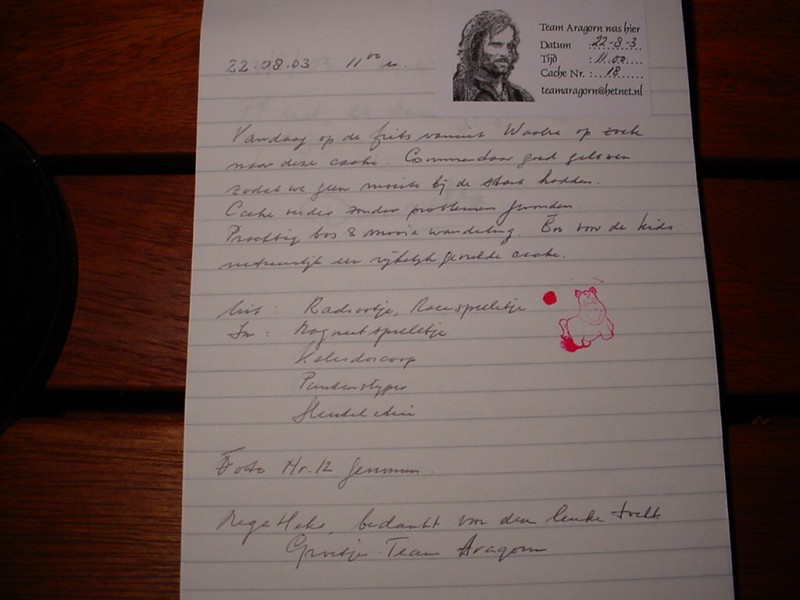 Team Aragorn was hier
Datum : 22-8-3
Tijd : 11.00
Cache Nr. : 18
teamaragorn@hetnet.nl
22.08.03 11⁰⁰ u.
Vandaag op de fiets vanuit op zoek
naar deze cache. goed gelezen
zodat we geen moeite bij de start hadden.
Cache verder zonder problemen gevonden.
Prachtig bos & mooie wandeling. En voor de kids
natuurlijk een rijkelijk gevulde cache.
Uit : Radiootje, Racespelletje
In : Magneetspelletje
Kaleidoscoop
Puntenslijper
Foto Nr. 12 genomen.
Mega Heks, bedankt voor deze leuke tocht
Groetjes Team Aragorn